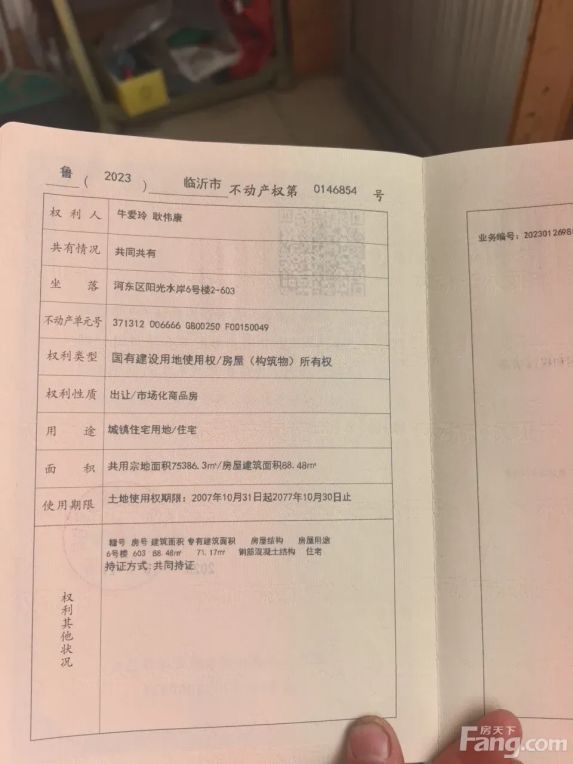 鲁 ( 2023 ) 临沂市 不动产权第 0146854 号
权利人 牛爱玲 耿伟康
共有情况 共同共有
坐落 河东区阳光水岸6号楼2-603
不动产单元号 371312 006666 GB00250 F00150049
权利类型 国有建设用地使用权/房屋（构筑物）所有权
权利性质 出让/市场化商品房
用途 城镇住宅用地/住宅
面积 共用宗地面积75386.3㎡/房屋建筑面积88.48㎡
使用期限 土地使用权期限：2007年10月31日起2077年10月30日止
权利其他状况
幢号 房号 建筑面积 专有建筑面积 房屋结构 房屋用途
6号楼 603 88.48㎡ 71.17㎡ 钢筋混凝土结构 住宅
持证方式：共同持证
业务编号：2023012698
房天下
Fang.com